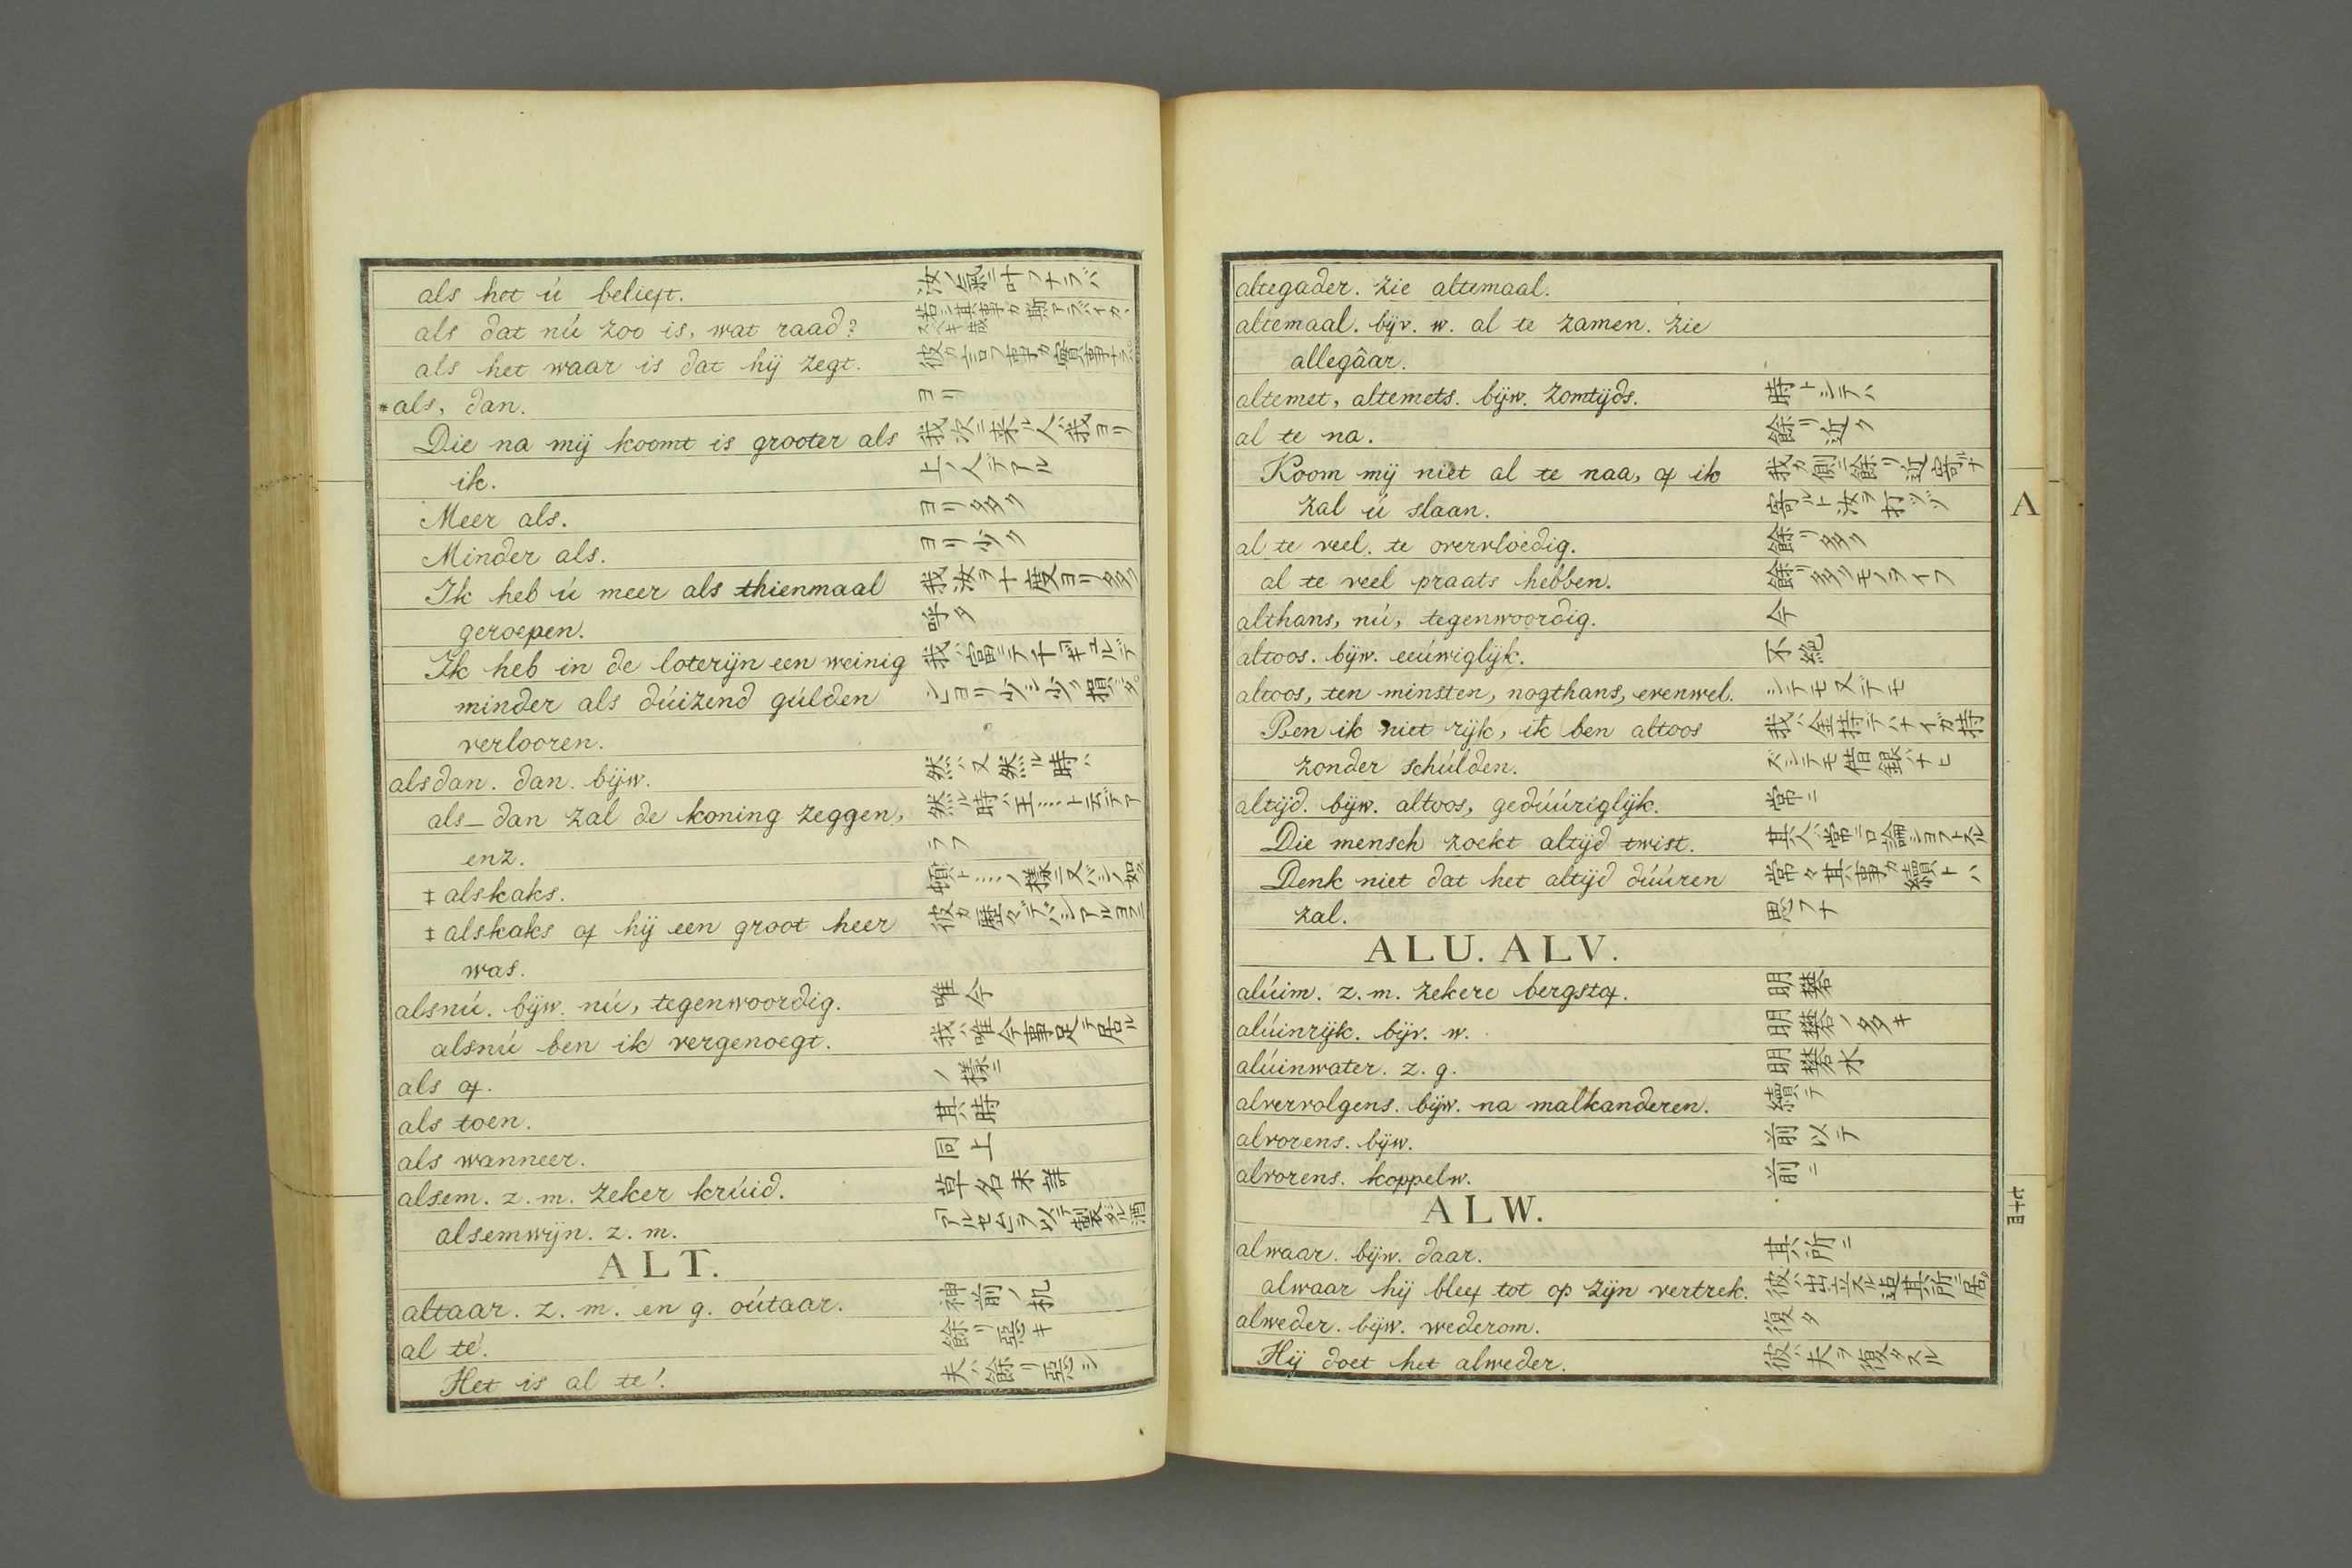 als het ú belieft. 汝ノ氣ニ叶フナラバ
als dat nú zoo is, wat raad? 若シ其事ガ斯アラバイカヾ
スベキ哉
als het waar is dat hij zegt. 彼ガ言フ事ガ實事ナラバ
*als, dan. ヨリ
Die na mij koomt is grooter als 我次ニ来ル人ハ我ヨリ
ik. 上ノ人デアル
Meer als. ヨリ多ク
Minder als. ヨリ少ク
Ik heb ú meer als thienmaal 我汝ヲ十度ヨリ多ク
geroepen. 呼タ
Ik heb in de loterijn een weinig 我ハ富ニテ千ギュルデ
minder als dúizend gúlden ンヨリ少シ少ク損シタ
verlooren.
alsdan. dan. bijw. 然ハ又然ル時ハ
als_dan zal de koning zeggen, 然ル時ハ王……ト云デア
enz. ラフ
‡alskaks. 頓ト……ノ様ニ又ハシノ如ク
‡alskaks of hij een groot heer 彼ガ歴々デバシアルヨフニ
was.
alsnú. bijw. nú, tegenwoordig. 唯今
alsnú ben ik vergenoegt. 我ハ唯今事足テ居ル
als of. ノ様ニ
als toen. 其時
als wanneer. 同上
alsem. z. m. zeker krúid. 草名未詳
alsemwijn. z. m. 「アルセムヲ以テ製タル酒
ALT.
altaar. z. m. en g. oútaar. 神前ノ机
al te. 餘リ惡キ
Het is al te! 夫ハ餘リ惡シ
altegader. zie altemaal.
altemaal. bijv. w. al te zamen. zie
allegâar.
altemet, altemets. bijw. zomtijds. 時トシテハ
al te na. 餘リ近ク
Koom mij niet al te naa, of ik 我ガ側ニ餘リ近寄ルナ
zal ú slaan. 寄ルト汝ヲ打ツゾ
al te veel. te overvloedig. 餘リ多ク
al te veel praats hebben. 餘リ多クモノヲイフ
althans, nú, tegenwoordig. 今
altoos. bijw. eeúwiglijk. 不絶
altoos, ten minsten, nogthans, evenwel. シテモ又デモ
Ben ik niet rijk, ik ben altoos 我ハ金持デハナイガ持
zonder schúlden. ズシテモ借銀ハナヒ
altijd. bijw. altoos, gedúúriglijk. 常ニ
Die mensch zoekt altijd twist. 其人ハ常ニ口論シヨフトスル
Denk niet dat het altijd dúúren 常々其事ガ續トハ
zal. 思フナ
ALU. ALV.
alúim. z. m. zekere bergstof. 明礬
alúinrijk. bijv. w. 明礬ノ多キ
alúinwater. z. g. 明礬水
alvervolgens. bijw. na malkanderen. 續テ
alvorens. bijw. 前以テ
alvorens. koppelw. 前ニ
ALW.
alwaar. bijw. daar. 其所ニ
alwaar hij bleef tot op zijn vertrek. 彼ハ出立スル迄其所ニ居タ
alweder. bijw. wederom. 復タ
Hij doet het alweder. 彼ハ夫ヲ復タスル
A